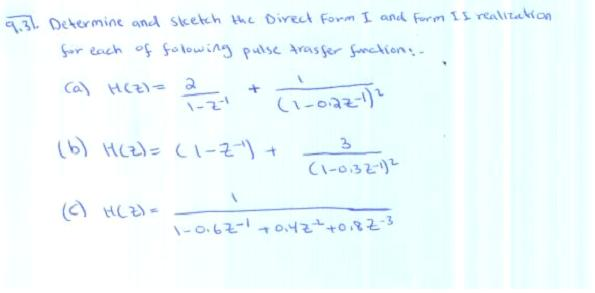 9.31. Determine and sketch the Direct Form I and Form II realization
for each of folowing pulse trasfer function:-
(a) H(z) = 2 / (1-z^-1) + 1 / (1-0.2z^-1)^2
(b) H(z) = (1-z^-1) + 3 / (1-0.3z^-1)^2
(c) H(z) = 1 / (1-0.6z^-1 + 0.4z^-2 + 0.8z^-3)